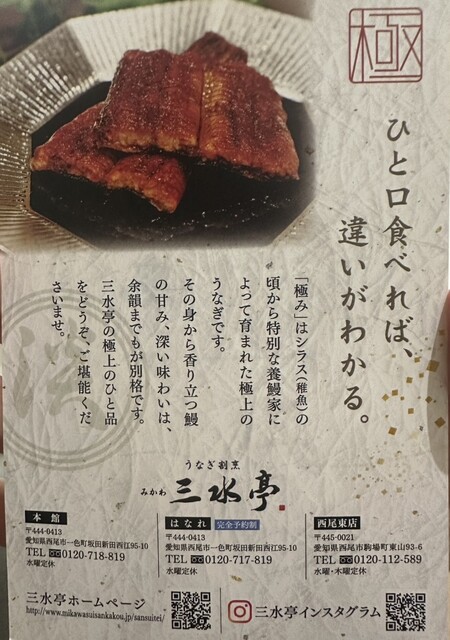 極
ひと口食べれば、
違いがわかる。
「極み」はシラス(稚魚)の
頃から特別な養鰻家に
よって育まれた極上の
うなぎです。
その身から香り立つ鰻
の甘み、深い味わいは、
余韻までもが別格です。
三水亭の極上のひと品
をどうぞ、ご堪能くだ
さいませ。
うなぎ割烹
みかわ 三水亭
本館
〒444-0413
愛知県西尾市一色町坂田新田西江95-10
TEL 0120-718-819
水曜定休
はなれ 完全予約制
〒444-0413
愛知県西尾市一色町坂田新田西江95-10
TEL 0120-717-248
水曜定休
西尾東店
〒445-0021
愛知県西尾市駒場町東山93-6
TEL 0120-112-589
水曜・木曜定休
三水亭ホームページ
http://www.mikawasuisankakou.jp/sansuitei/
三水亭インスタグラム